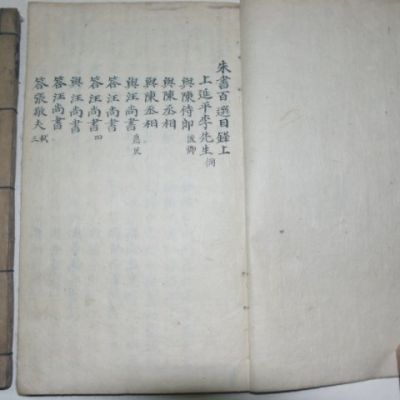 朱書百選目錄上
上延平李先生侗
與陳侍郎俊卿
與陳丞相
與陳丞相
與汪尚書應辰
答汪尚書
答汪尚書四
與汪尚書
答汪尚書
答張敬夫栻三